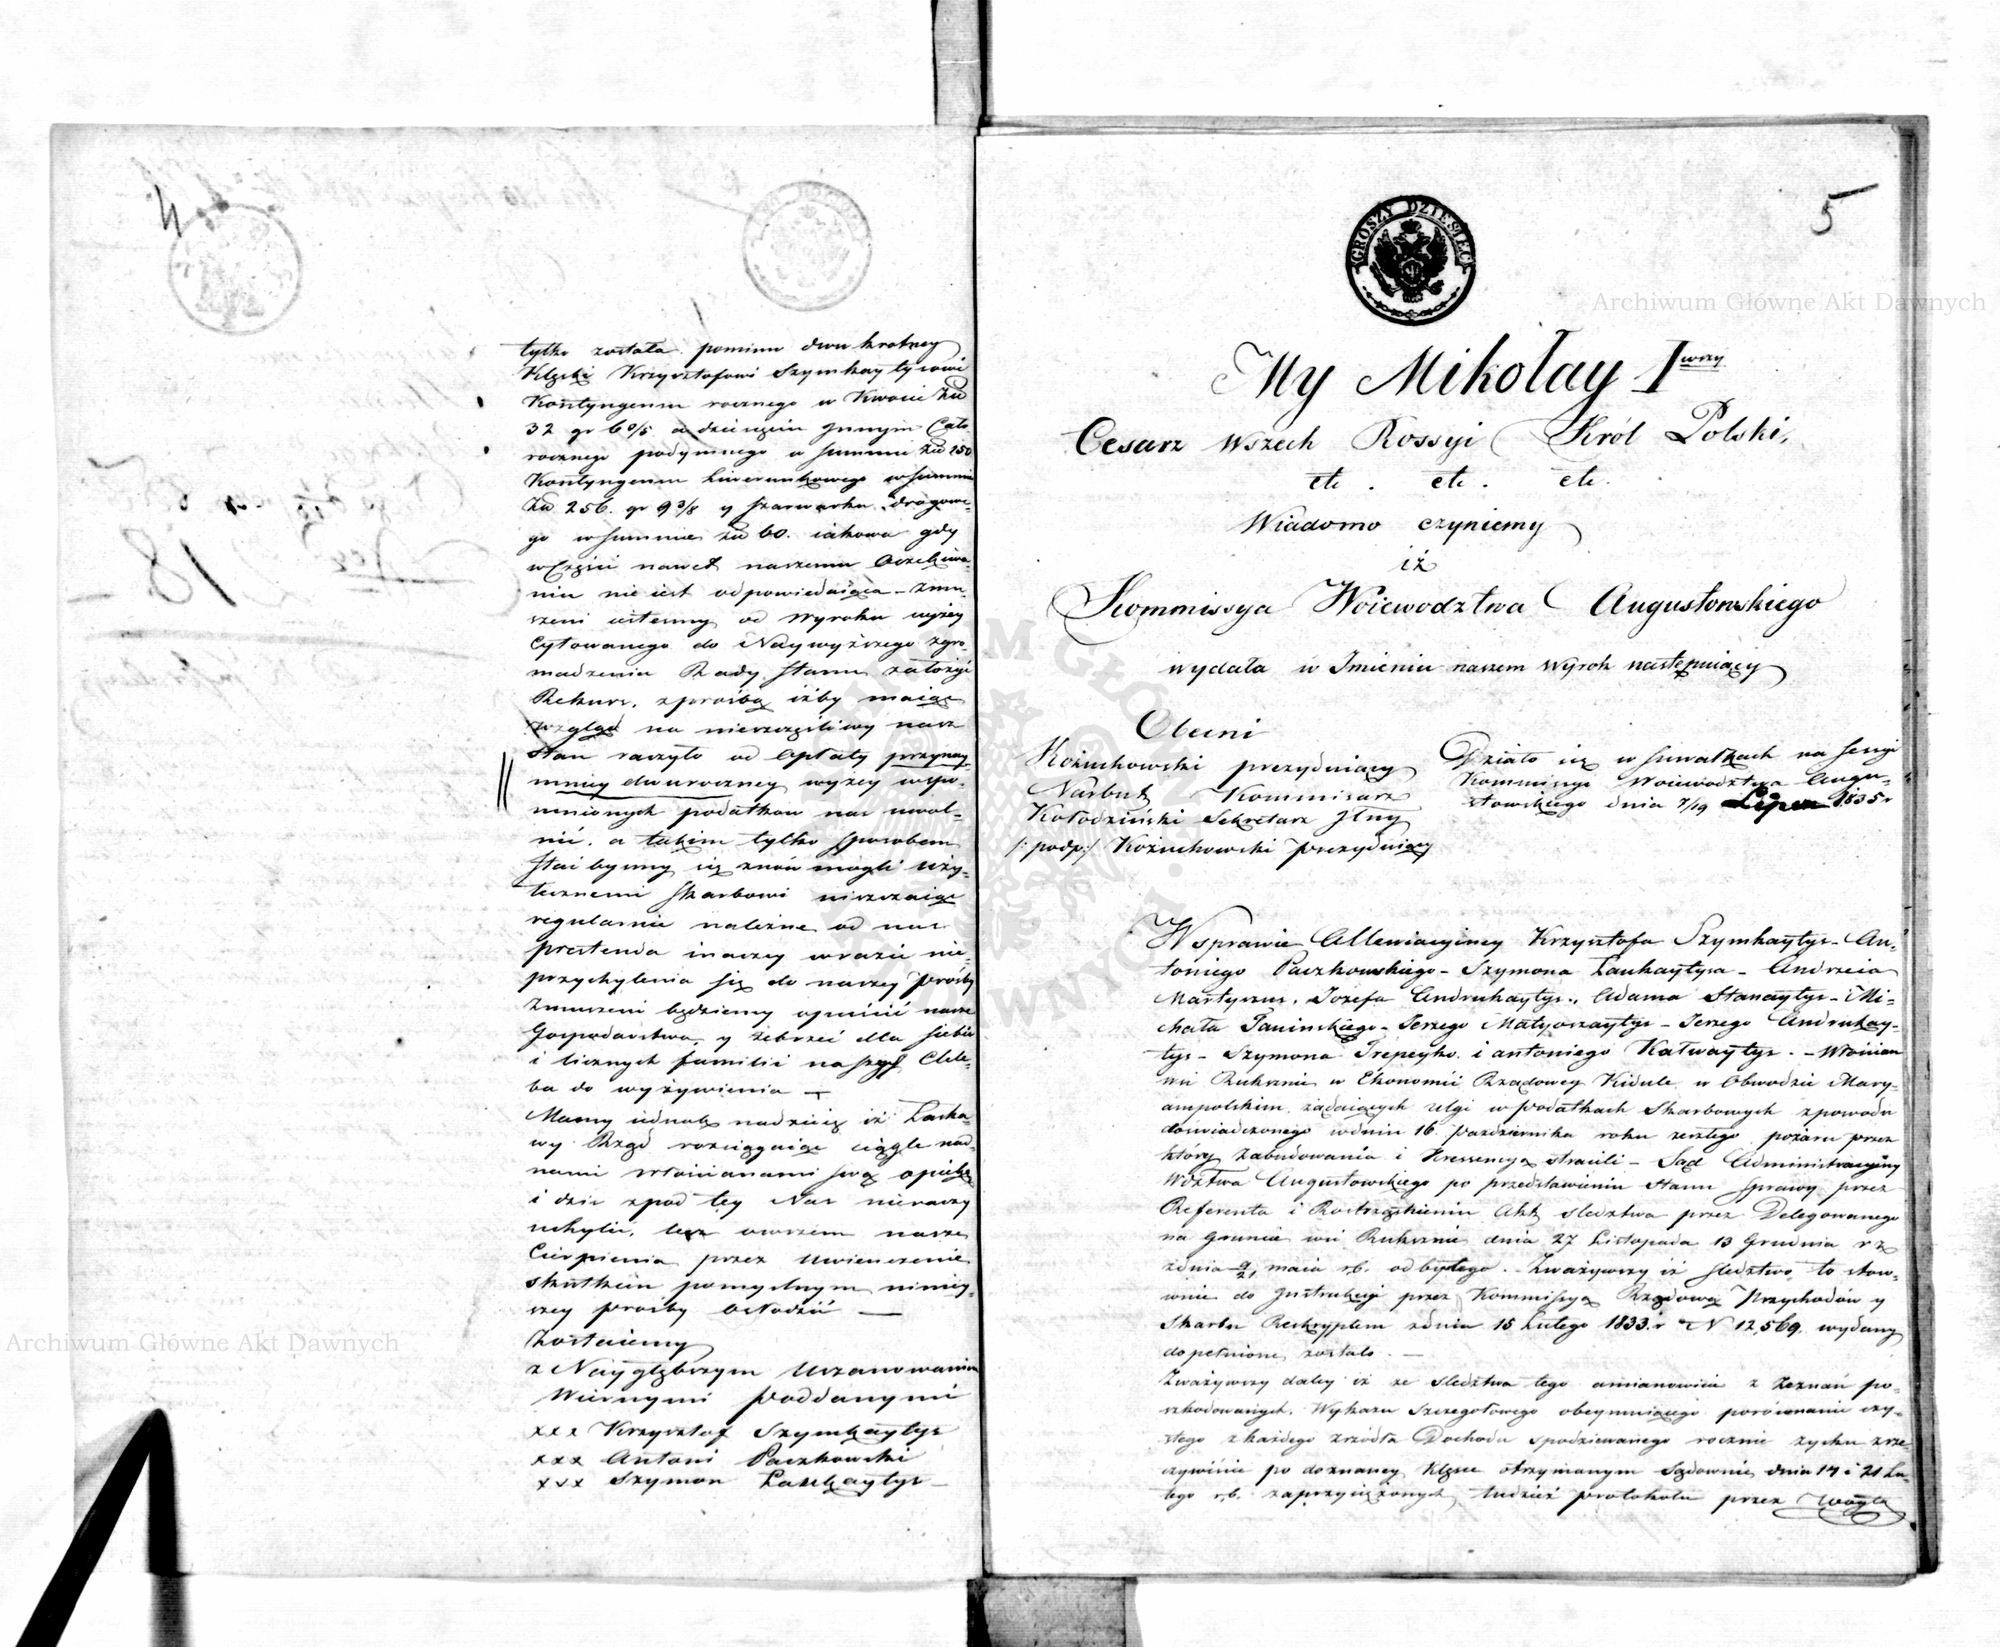 4
tylko została pomimo dwu krotney
Klęski Krzysztofowi Szymkaytysowi
Kontyngensu rocznego w Kwocie Złł
32 gr 6 0/5 a dziesięciu Jnnym Cało
rocznego podymnego w summie Złł 150
Kontyngensu Liwerunkowego w summie
Złł 256. gr 9 3/8 y szarwarku drogowe-
go w summie złł 60. iakowa gdy
w Części nawet naszemu Oczekiwa-
niu nie iest odpowiedaiąca – zmu-
szeni iestesmy od Wyroku wyżey
Cytowanego do Naywyższego zgro-
madzenia Rady Stanu założyć
Rekurs, z prośbą iżby maiąc
wzgląd na nieszczęśliwy nasz
stan raczyło od Opłaty przynay-
mniey dwuroczney wyżey wspo-
mnionych podatkow nas uwol-
nić, a takim tylko sposobem
stać byśmy się znów mogli uży-
tecznemi Skarbowi uiszczaiąc
regularnie należne od nas
prestenda inaczey w razie nie
przychylenia się do naszey prośby
Zmuszeni będziemy opuścić nasze
Gospodarstwa, y żebrzeć dla siebie
i licznych familii naszych Chle-
ba do wyżywienia —
Mamy iednak nadzieię iż Łaska-
wy Rząd rozciągaiąc ciągle nad
nami włościanami swą opiekę
i dziś z pod tey Nas nieraczy
uchylić, lecz owszem nasze
Cierpienia przez Uwienczenie
skutkiem pomyslnym niniey-
szey prosby osłodzić —
Zostaiemy
z Nayglębszym Uszanowaniem
Wiernymi Poddanymi
xxx Krzysztof Szymkaytys
xxx Antoni Paczkowski
xxx Szymon Laukaytys –
5
GROSZY DZIESIĘĆ
My Mikołay Iwszy
Cesarz Wszech Rossyi Król Polski,
etc. etc. etc.
Wiadomo czyniemy
iż
Kommissya Woiewodztwa Augustowskiego
wydała w Jmieniu naszem Wyrok następuiący
Obecni
Kożuchowski prezyduiący
Narbut Kommisarz
Kołodziński Sekretarz Jlny
/: podp:/ Kożuchowski Prezyduiący
Działo się w Suwałkach na Sessyi
Kommissyi Woiewodztwa Augu-
stowskiego dnia 7/19 Lipca 1835 r
W sprawie Allewiacyiney Krzysztofa Szymkaytys – An-
toniego Paczkowskiego – Szymona Laukaytysa – Andrzeia
Martyszus, Jozefa Andrukaytys, Adama Stanaytys – Mi-
chała Janinskiego – Jerzego Matyoszaytys – Jerzego Andrukay-
tys – Szymona Trepeyko i antoniego Katwaytys. – Włościan
wsi Ruksznie w Ekonomii Rządowey Kidule w Obwodzie Mary-
ampolskim żądaiących ulgi w Podatkach Skarbowych z powodu
doświadczonego w dniu 16 Pazdziernika roku zeszłego pożaru przez
który Zabudowania i Kressencyą stracili – Sąd Administracyiny
Wdztwa Augustowskiego po przedstawieniu Stanu Sprawy przez
Referenta i Roztrząśnieniu Akt sledztwa przez Delegowanego
na gruncie wsi Rukszni dnia 27 Listopada 13 Grudnia r z
z dnia 9/21 maia r.b. odbytego. Zważywszy iż sledztwo to stosow-
nie do Jnstrukcyi przez Kommissyą Rządową Przychodów y
Skarbu Reskryptem z dnia 15 Lutego 1833 r N 12,569. wydaney
dopełnione zostało. —
Zważywszy daley iż ze sledztwa tego amianowicie z Zeznań po-
szkodowanych, Wykazu Szczegołowego obeymuiącego porównanie czy-
stego z każdego zrzódła Dochodu spodziewanego rocznie zysku z rze-
czywiście po doznaney Klęsce otrzymanym Sądownie dnia 14 i 21 Lu-
tego r.b. zaprzysiężonych, tudzież protokułu przez Woyta
Archiwum Główne Akt Dawnych
Archiwum Główne Akt Dawnych